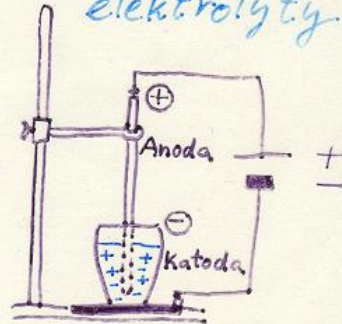 elektrolyty.
+
Anoda
+
−
−
Katoda